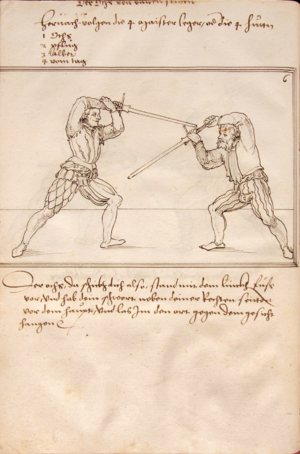 Der Ochs von baiden seitten
Hernach volgen die 4 maister leger, oder die 4 hutten
1 Ochs
2 pflug
3 alber
4 vom tag
6
Der ochs, du schickh dich also. stand mit dem lincken fuess
vor, vnd hab dein schwert neben deiner Rechten seitten
vor dem haupt, vnd las Im den ort gegen dem gesicht
hangen